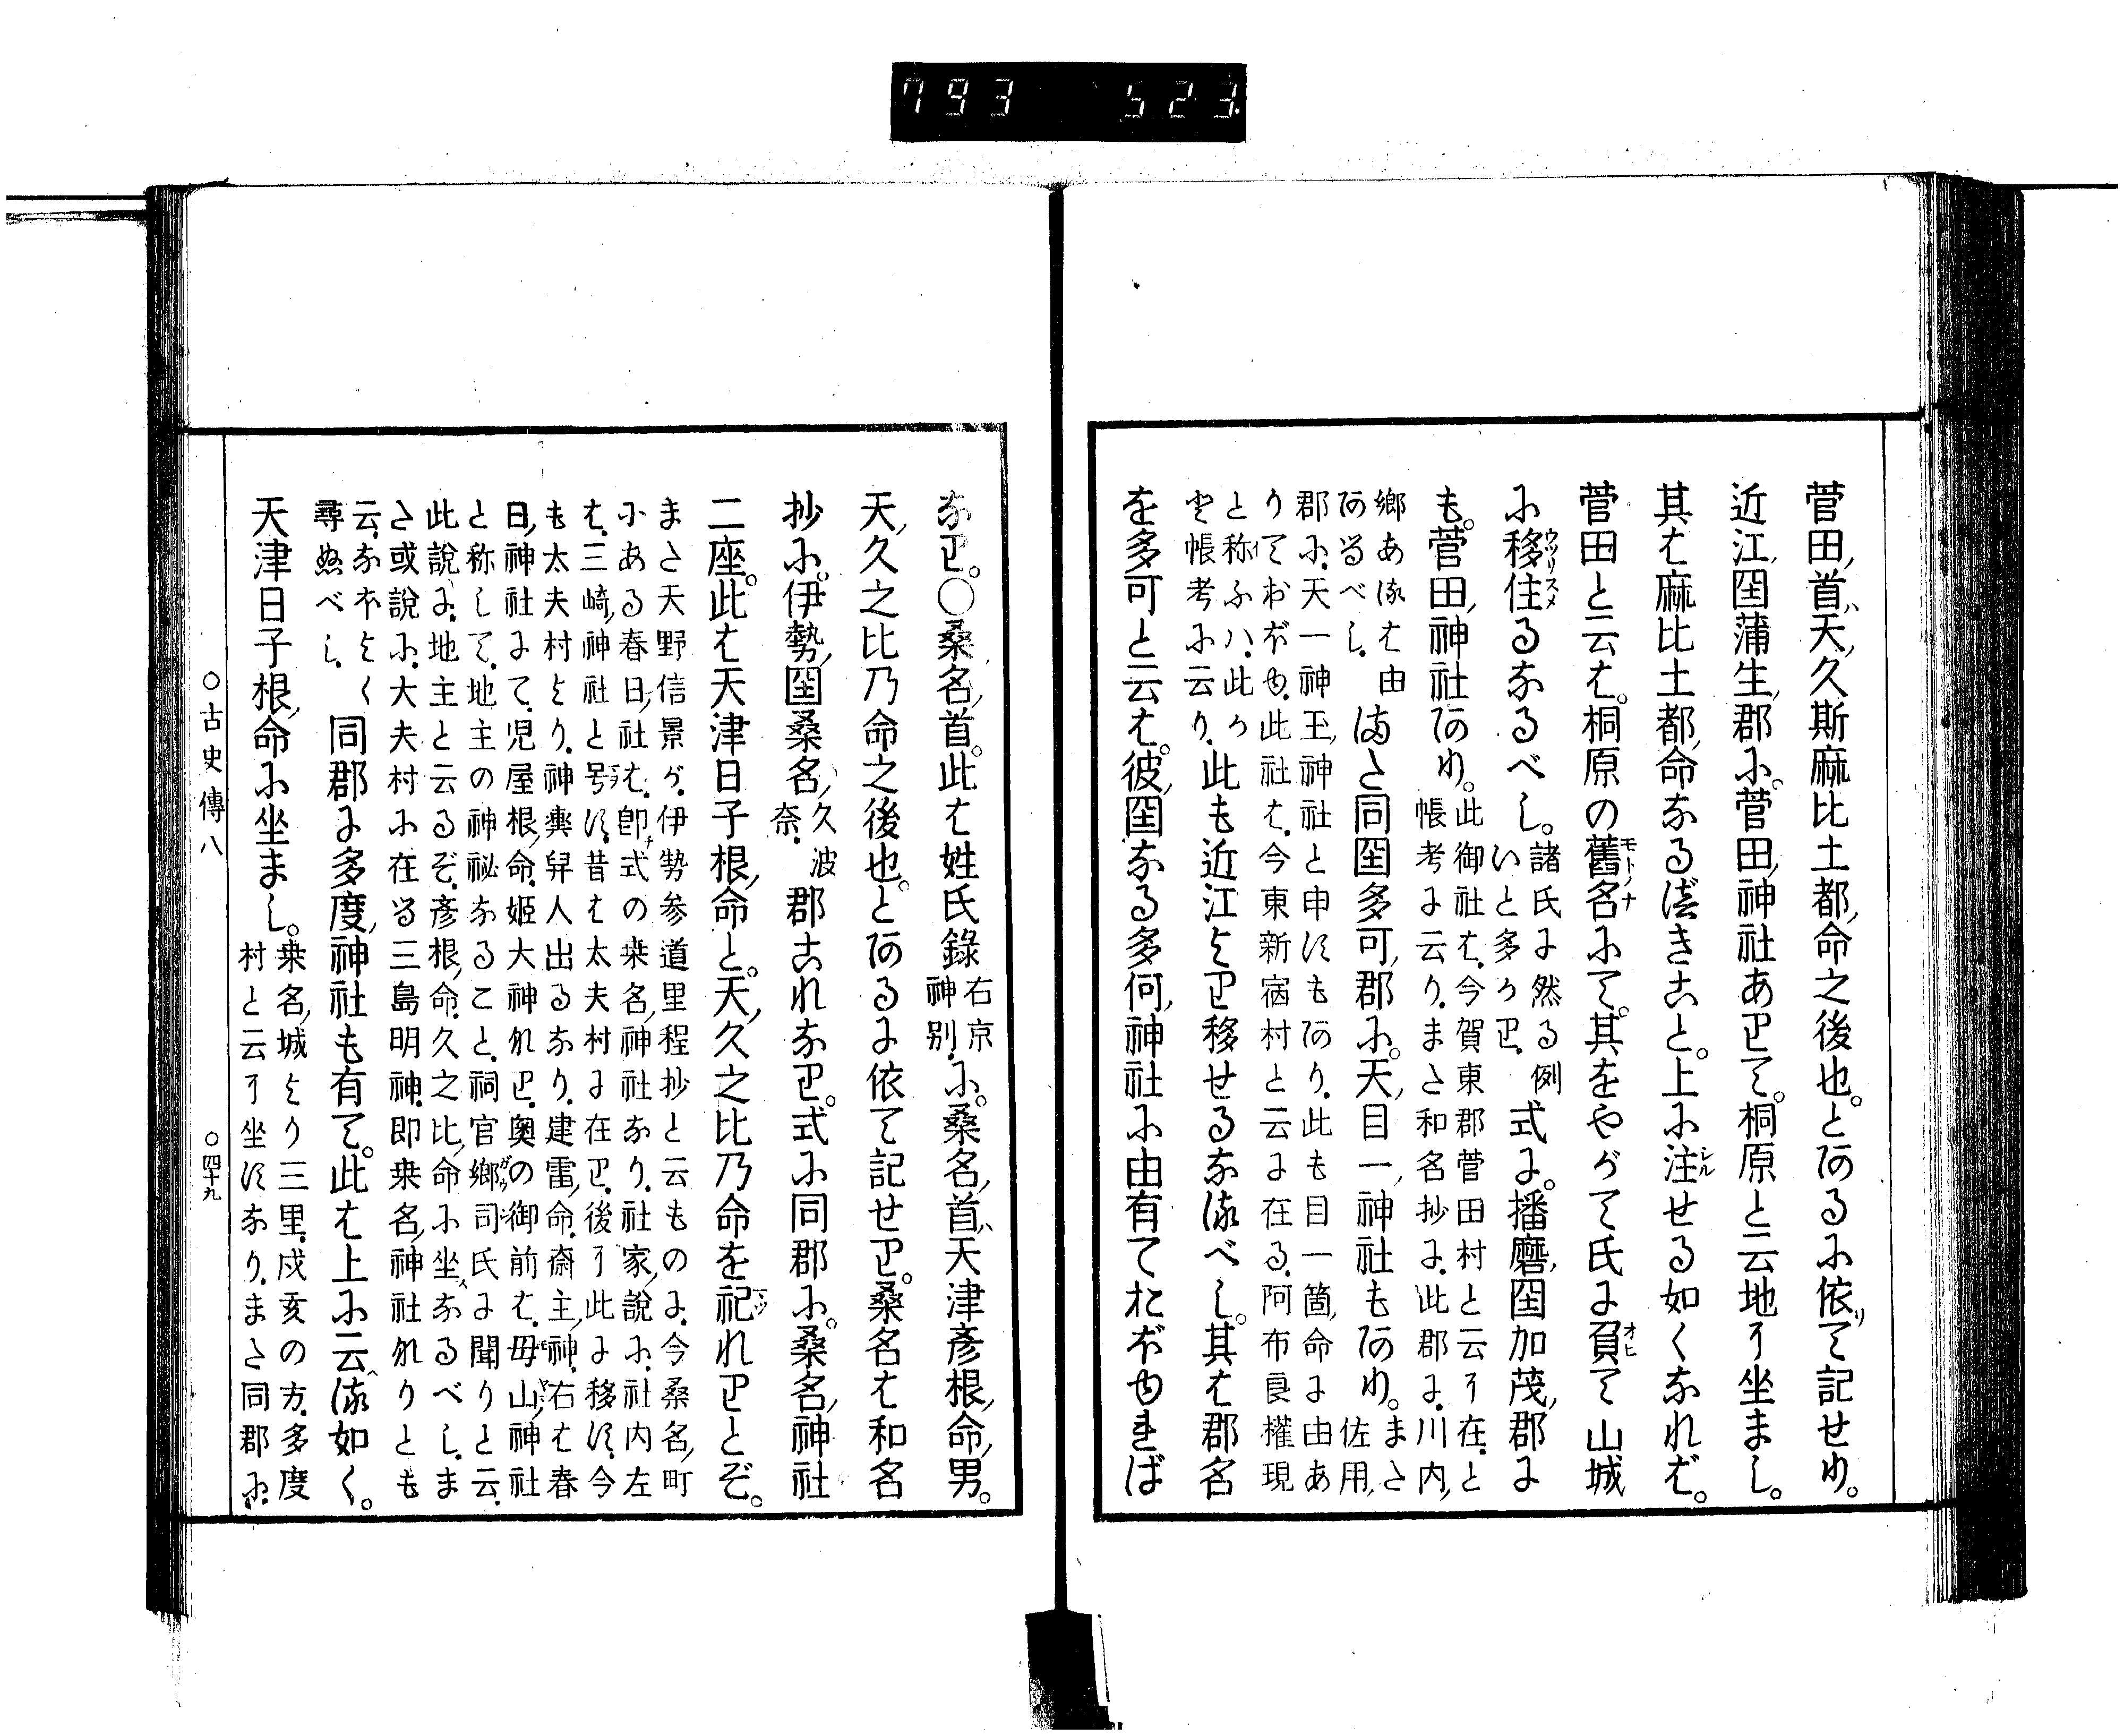 793 523
菅田首ハ天久斯麻比土都命之後也。とあるに依リて記せり。
近江国蒲生郡に。菅田神社ありて。桐原と云地に坐まし。
其は麻比土都命なる漥きこと。上に注シルせる如くなれば。
菅田と云は。桐原の舊名モトノナにて。其をやがて氏に負オヒて山城
に移住ウツリスメるなるべし。諸氏に然る例
いと多かり。式に。播磨国加茂郡に
も。菅田神社あり。此御社は。今賀東郡菅田村と云に在。と
帳考に云り。また和名抄に。此郡に。川内
郷あるは由
あるべし。また同国多可郡に。天目一神社もあり。また
佐用
郡に。天一神玉神社と申すもあり。此も目一箇命に由あ
りておぼゆ。此社は。今東新宿村と云に在る。阿布良權現
と称イふハ。此か
と帳考に云り。此も近江より移せるなるべし。其は郡名
を多可と云は。彼国なる多何神社に由有ておぼゆれば
なり。〇桑名首。此は姓氏錄右京
神別に。桑名首ハ天津彥根命男。
天久之比乃命之後也。とあるに依て記せり。桑名は和名
抄に。伊勢国桑名久波
奈郡これなり。式に同郡に。桑名神社
二座。此は天津日子根命と。天久之比乃命を祀マツれりとぞ。
また天野信景が。伊勢参道里程抄と云ものに。今桑名町
にある春日社は。卽ナ式の桒名神社なり。社家說に。社内左
は。三崎神社と号す。昔は太夫村に在り。後に此に移す。今
も太夫村より。神輿舁人出るなり。建雷命。齋主神。右は春
日神社にて。児屋根命。姬大神れり。奧の御前は。毋山神社
と称して。地主の神祕なること。祠官鄉司氏に聞りと云。
此說に。地主と云るぞ。彥根命。久之比命に坐スなるべし。ま
た或說に。大夫村に在る三島明神。即桒名神社なりとも
云。なほよく
尋ぬべし。同郡に多度神社も有て。此は上に云ヘる如く。
天津日子根命に坐まし。桒名城より三里。戍亥の方。多度
村と云に坐すなり。また同郡に。
○古史傳八 ○四十九